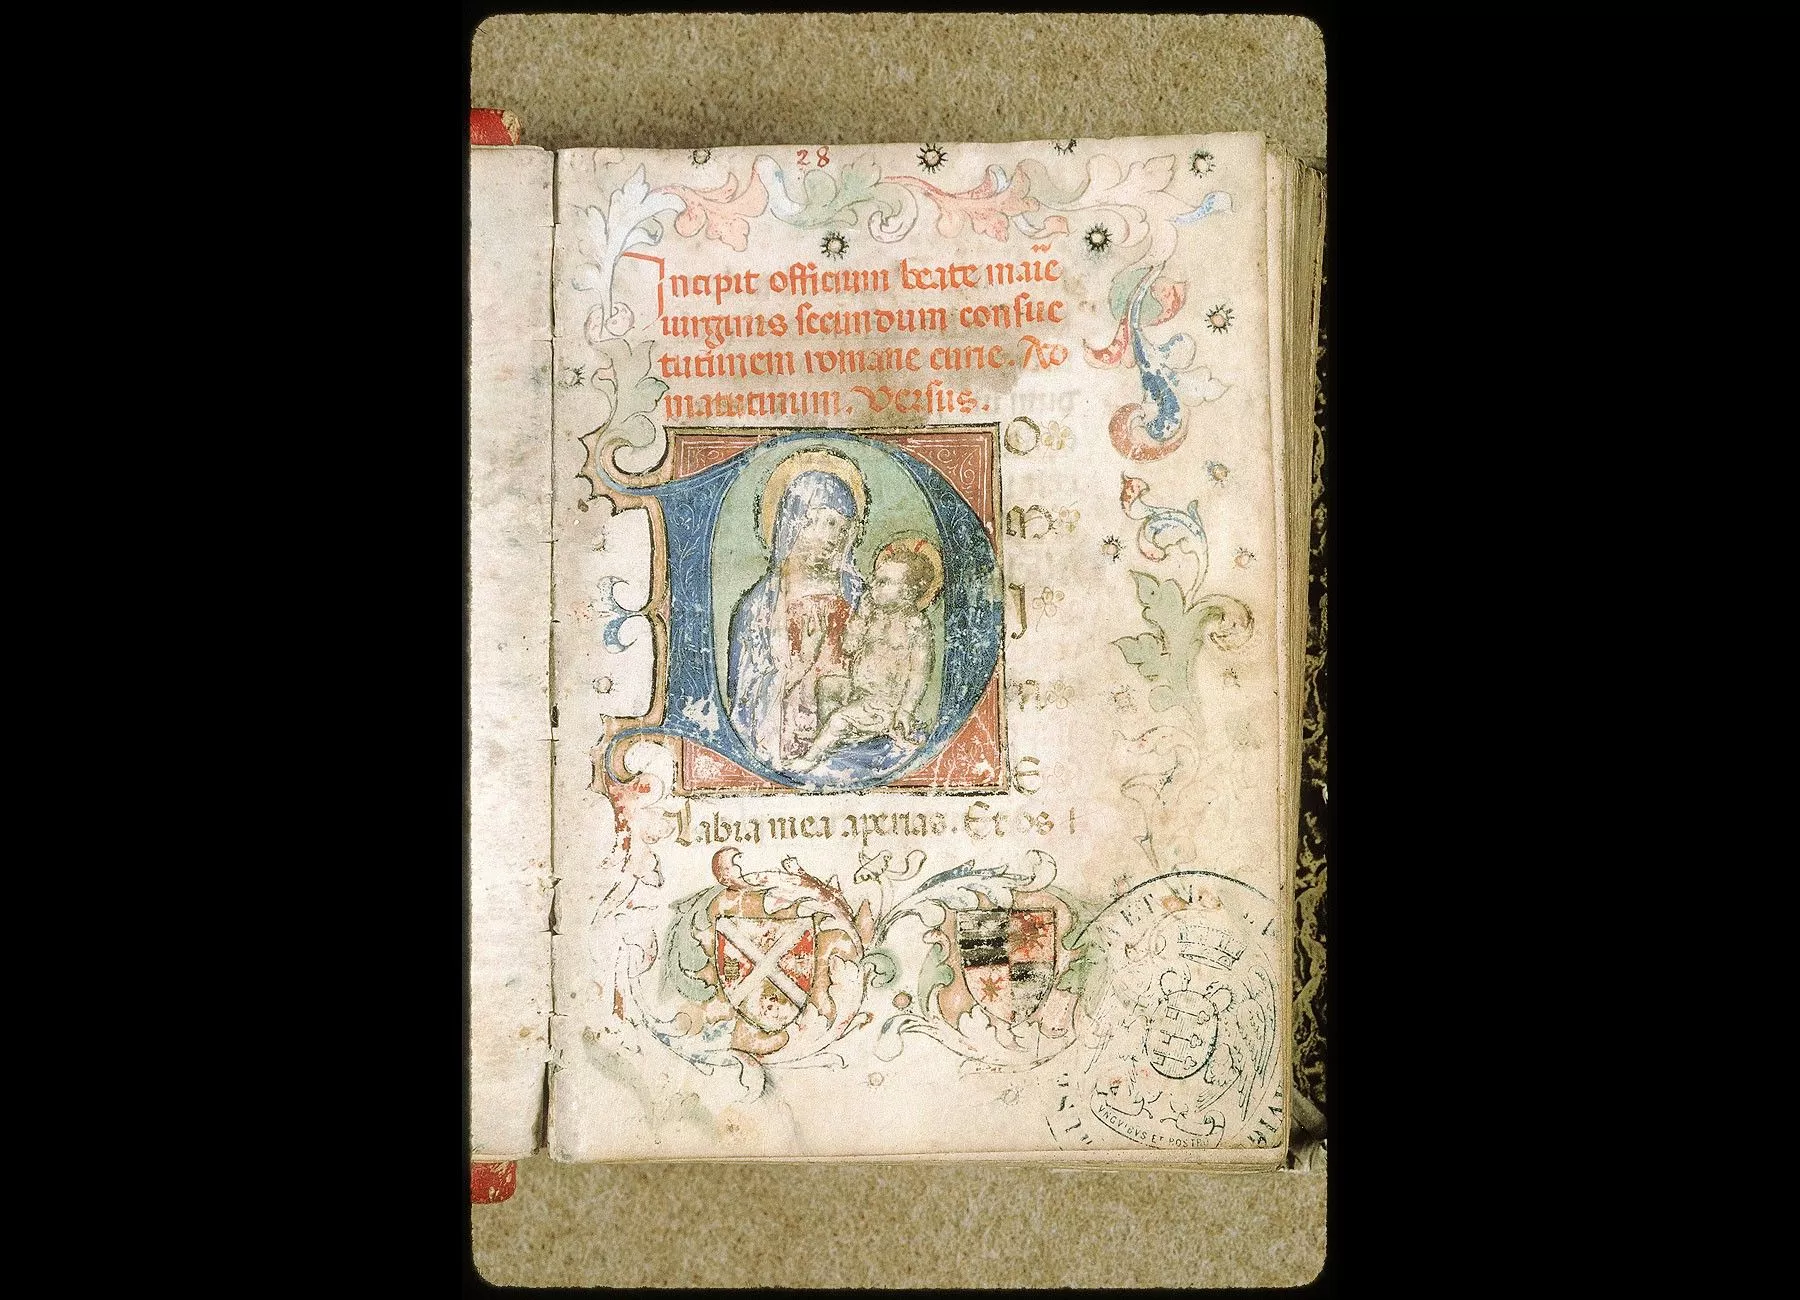 28
Incipit officium beate marie
uirginis secundum consue
tudinem romane curie. Ad
matutinum. Versus.
D
O
M
I
N
E
Labia mea aperias. Et os
VNGVIBVS ET ROSTRO